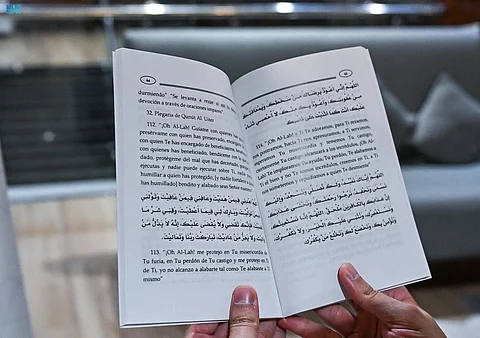 64
durmiendo" "Se levanta a rezar si así lo
devoción a través de oraciones impares"
32. Plegaria de Qunút AL Uiter
112. "¡Oh Al-Lah! Guíame con quienes
presérvame con quien has preservado, encárgame
con quien Te has encargado de
quienes has beneficiado, bendíceme con
dado, protégeme del mal que has decretado,
ejecutas y nadie puede ejecutar sobre Ti,
humillar a quien has protegido, [y nadie
humillado] bendito y alabado seas Señor
اللَّهُمَّ اهْدِنِي فِيمَنْ هَدَيْتَ وَعَافِنِي فِيمَنْ عَافَيْتَ وَتَوَلَّنِي
فِيمَنْ تَوَلَّيْتَ وَبَارِكْ لِي فِيمَا أَعْطَيْتَ وَقِنِي شَرَّ مَا
قَضَيْتَ فَإِنَّكَ تَقْضِي وَلَا يُقْضَى عَلَيْكَ، إِنَّهُ لَا يَذِلُّ مَنْ
وَالَيْتَ وَلَا يَعِزُّ مَنْ عَادَيْتَ، تَبَارَكْتَ رَبَّنَا وَتَعَالَيْتَ.
113. "¡Oh Al-Lah! me protejo en Tu misericordia
Tu furia, en Tu perdón de Tu castigo y me protejo en
de Ti, yo no alcanzo a alabarte tal como Te alabaste a
Ti mismo"
65
اللَّهُمَّ إِنِّي أَعُوذُ بِرِضَاكَ مِنْ سَخَطِكَ، وَبِمُعَافَاتِكَ
مِنْ عُقُوبَتِكَ، وَأَعُوذُ بِكَ مِنْكَ، لَا أُحْصِي ثَنَاءً
عَلَيْكَ أَنْتَ كَمَا أَثْنَيْتَ عَلَى نَفْسِكَ
114. "¡Oh Al-Lah! a Ti Te adoramos, para Ti rezamos
prosternamos, hacia Ti nos apresuramos, a Ti servimos,
misericordia y tememos Tu castigo,
Tu castigo alcanzará a los incrédulos, ¡Oh
Al-Lah! Te imploramos Tu ayuda, Tu perdón, Te alabamos
y no Te somos incrédulos, creemos en Ti, a Ti
nos sometemos y repudiamos a quien Te desmiente"
اللَّهُمَّ إِيَّاكَ نَعْبُدُ، وَلَكَ نُصَلِّي وَنَسْجُدُ، وَإِلَيْكَ
نَسْعَى وَنَحْفِدُ، نَرْجُو رَحْمَتَكَ، وَنَخْشَى
عَذَابَكَ، إِنَّ عَذَابَكَ بِالْكَافِرِينَ مُلْحَقٌ. اللَّهُمَّ إِنَّا نَسْتَعِينُكَ،
وَنَسْتَغْفِرُكَ، وَنُثْنِي عَلَيْكَ الْخَيْرَ، وَلَا نَكْفُرُكَ،
وَنُؤْمِنُ بِكَ، وَنَخْضَعُ لَكَ وَنَخْلَعُ مَنْ يَكْفُرُكَ.